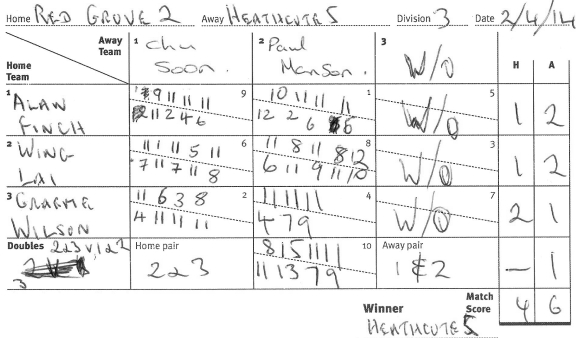 Home RED GROVE 2 Away HEATHCOTE 5 Division 3 Date 2/4/14
Away Team 1 Chu Soon. 2 Paul Manson. 3 W/O H A
Home Team
1 ALAN FINCH 9 5 1 2
9 11 11 11
11 2 4 6
10 11 11 11 1
12 2 6 5
W/O
2 WING LAI 6 8 3 1 2
11 11 11 5 11
7 11 7 11 8
11 8 11 8 12
6 11 9 11 10
W/O
3 GRAEME WILSON 2 4 7 2 1
11 6 3 8
4 11 11 11
11 11 11
4 7 9
W/O
Doubles 2&3 v 1&2
3
Home pair 2&3
10
8 15 11 11
11 13 7 9
Away pair 1 & 2
— 1
Winner HEATHCOTE 5
Match Score 4 6